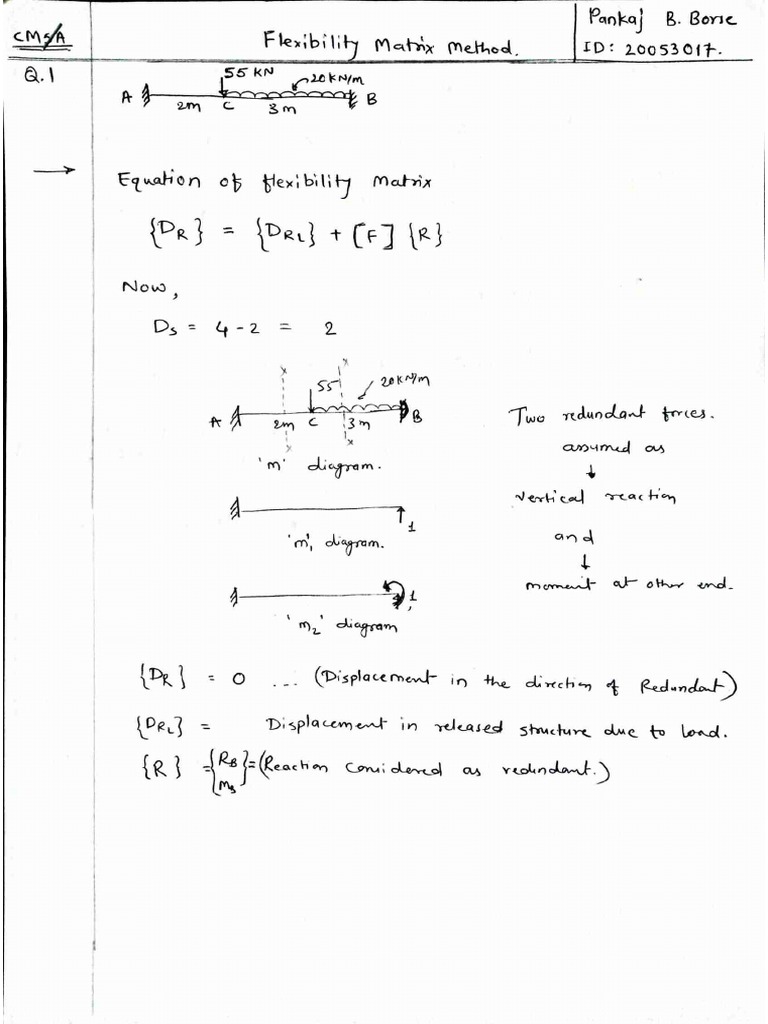 CMSA
Flexibility Matrix Method.
Pankaj B. Borse
ID: 20053017.
Q.1
55 KN
20KN/m
A
B
2m C 3m
→ Equation of flexibility Matrix
{DR} = {DRL} + [F] {R}
Now,
Ds = 4 - 2 = 2
55
20KN/m
A
B
2m C 3m
'm' diagram.
Two redundant forces.
assumed as
↓
vertical reaction
and
↓
moment at other end.
1
'm1' diagram.
1
'm2' diagram
{DR} = 0 ... (Displacement in the direction of Redundant)
{DRL} = Displacement in released structure due to load.
{R} = {RB MB} = (Reaction Considered as redundant.)